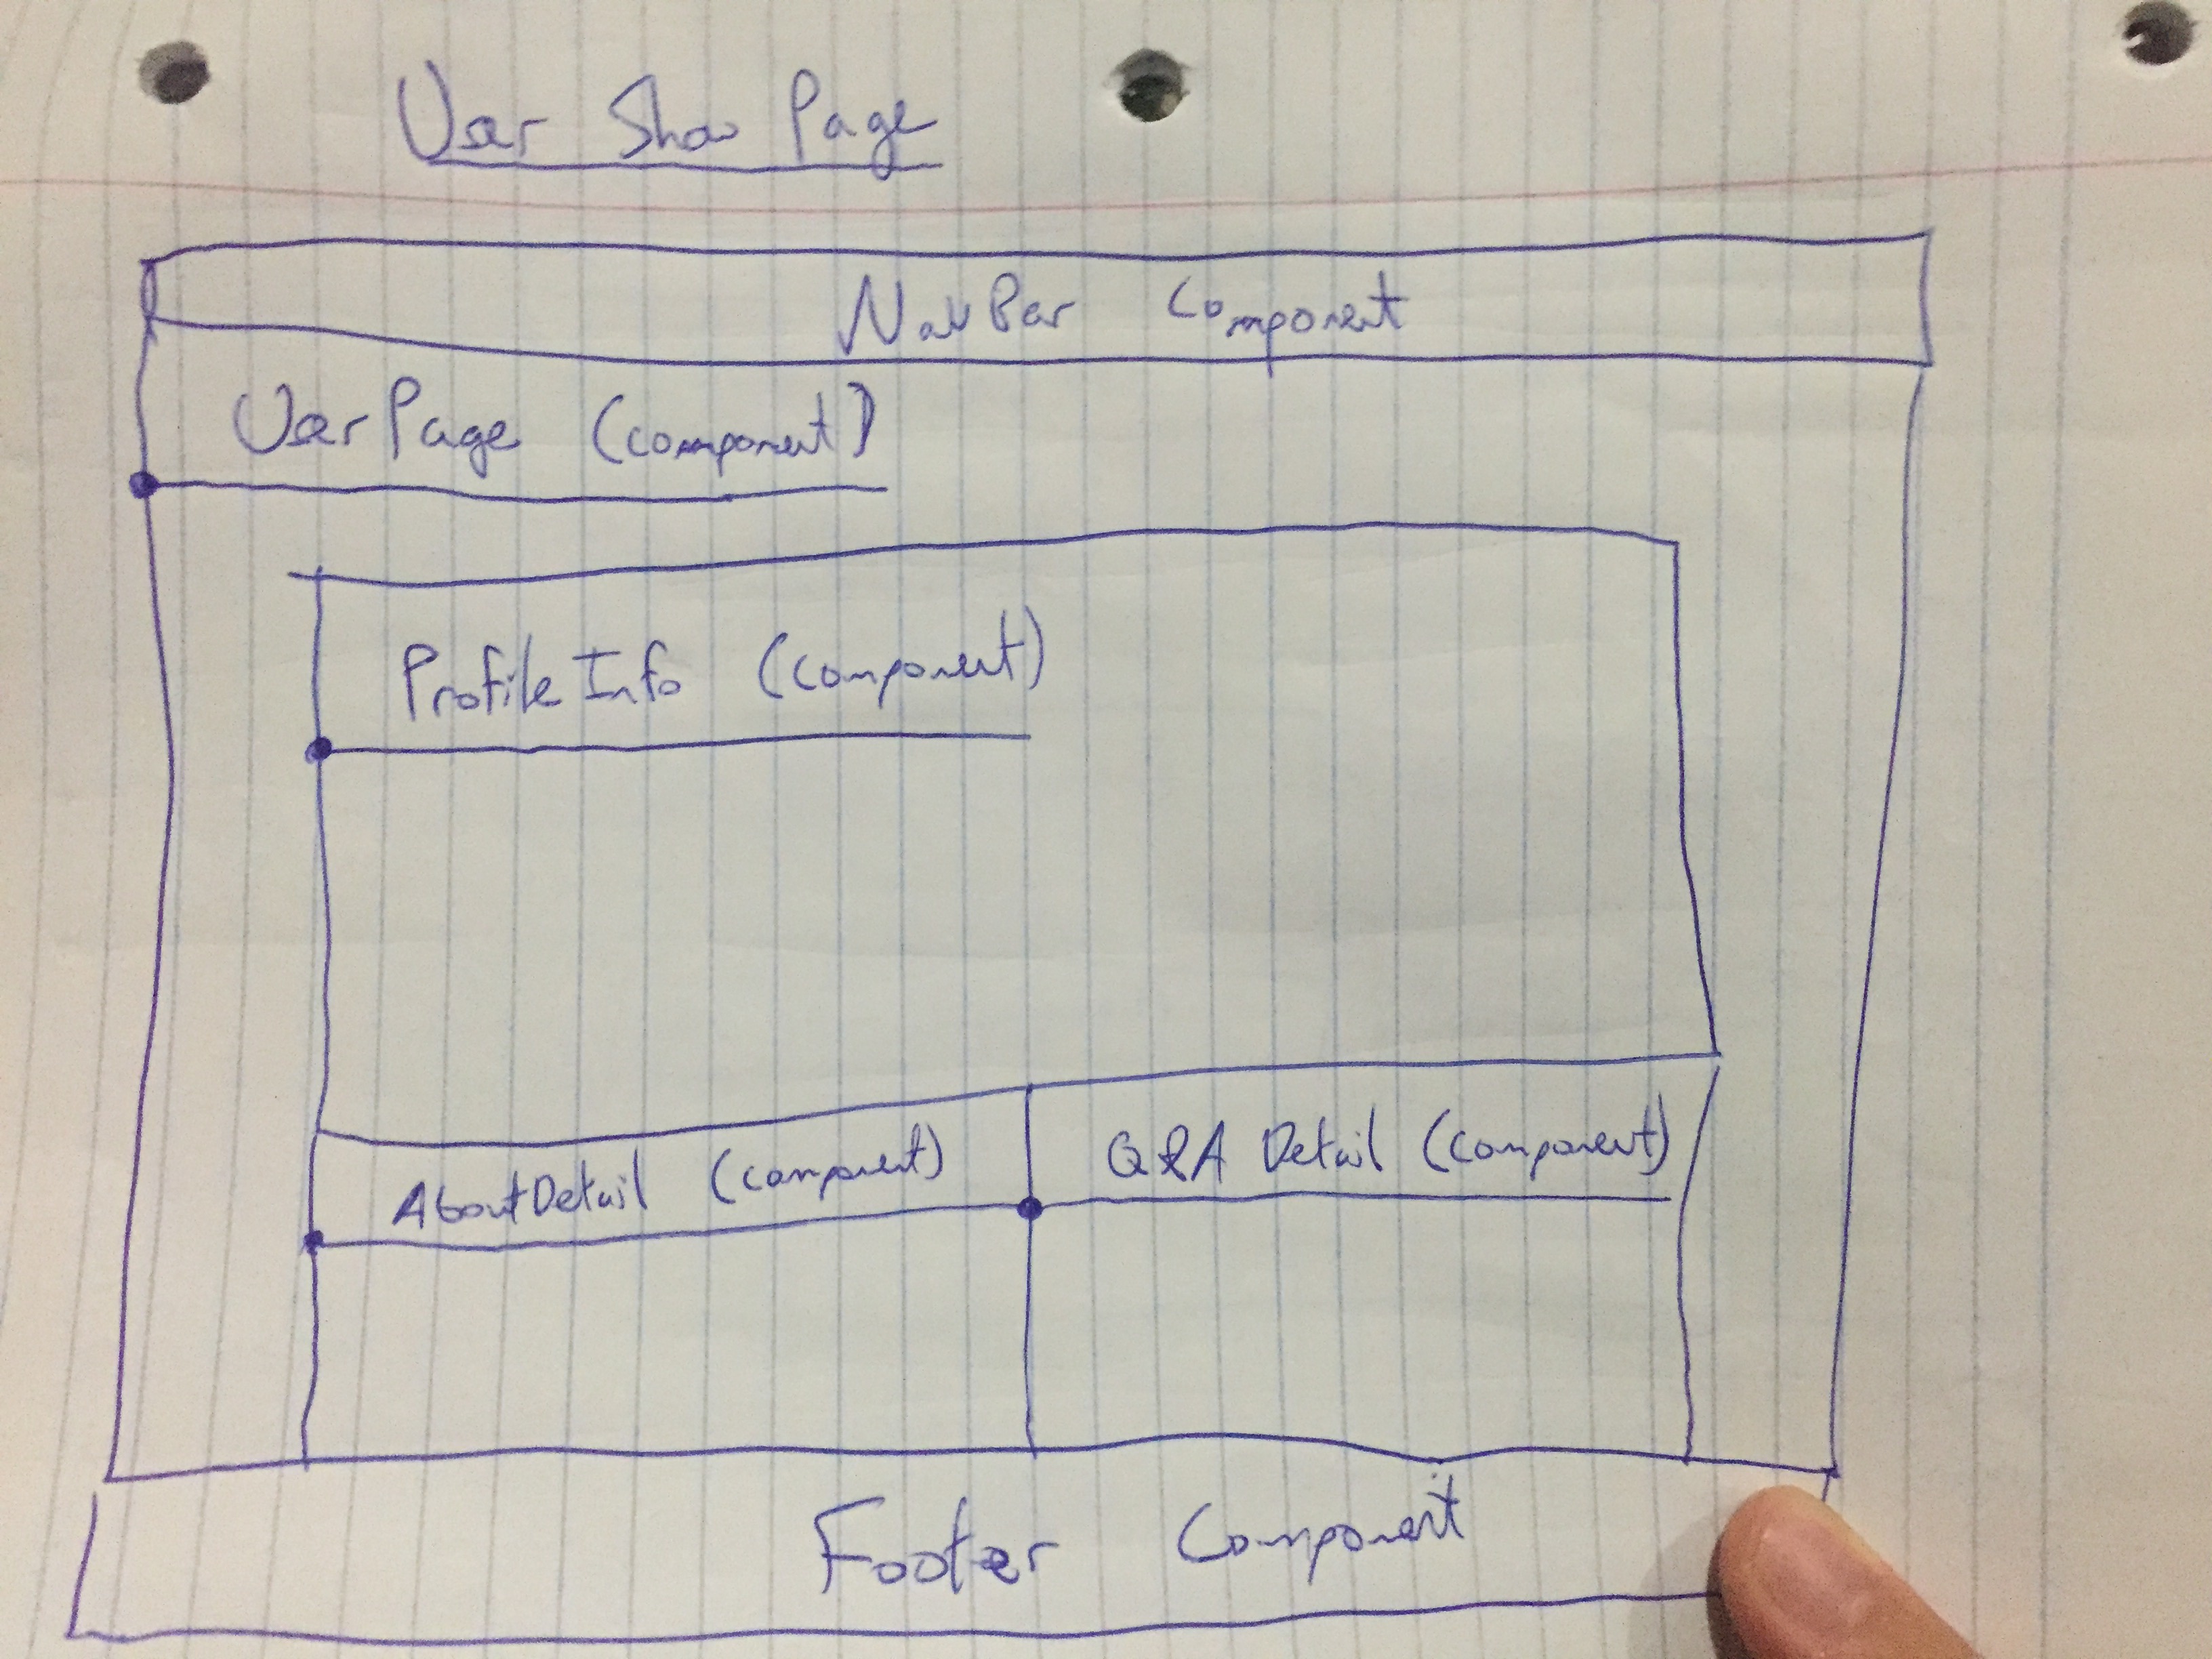 User Show Page
NavBar Component
UserPage (component)
ProfileInfo (component)
AboutDetail (component)
Q&A Detail (component)
Footer Component